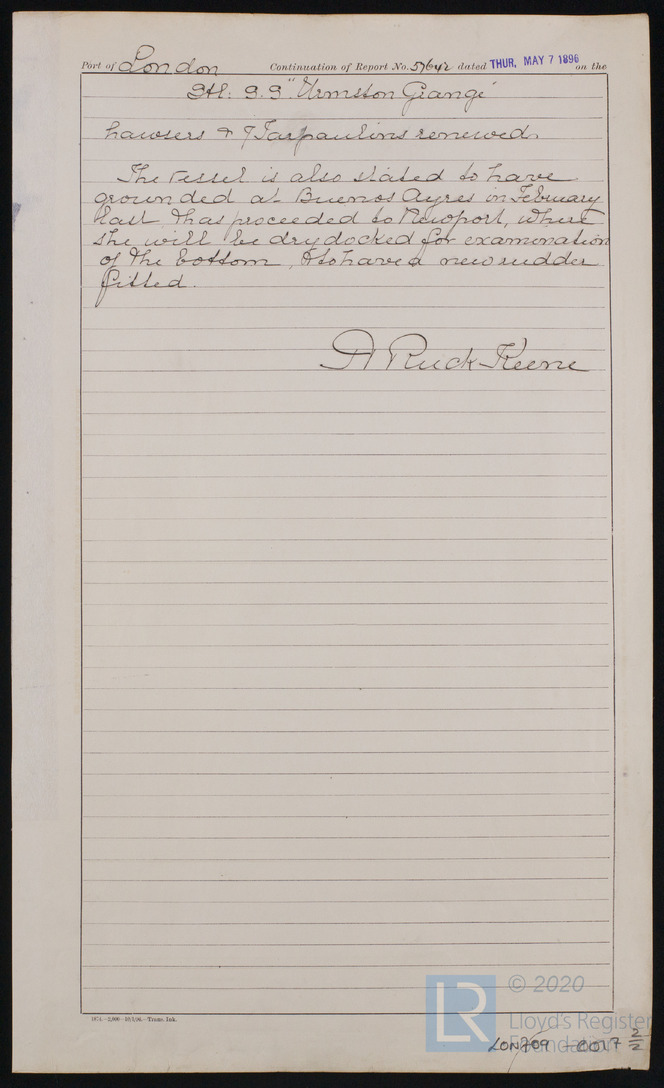 Port of London Continuation of Report No. 57642 dated THUR. MAY 7 1896 on the
Stl: S.S "Urmston Grange"
hawsers & 7 Tarpaulins renewed.
The vessel is also stated to have
grounded at Buenos Ayres in February
last, & has proceeded to Newport, where
she will be drydocked for examination
of the bottom, & to have a new rudder
fitted.
A Ruck-Keene
1874.—2,000—10/1/96.—Trans. Ink.
© 2020
Lloyd's Register
Foundation
LON709 - 0017 2/2